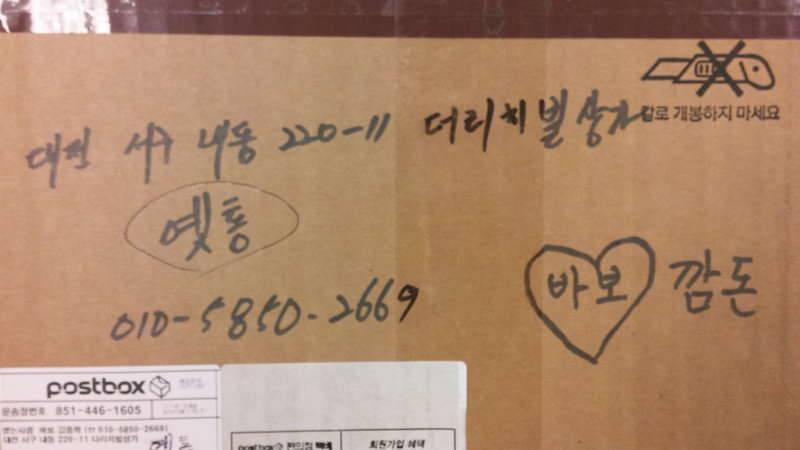 대전 서구 내동 220-11 더리치빌상가
칼로 개봉하지 마세요
옛통
010-5850-2669
바보 깜돈
postbox
운송장번호 851-446-1605
받는사람
(☎ 010-5850-2669)
대전 서구 내동 220-11 다리치빌상가
postbox 편의점 택배
회원가입 혜택